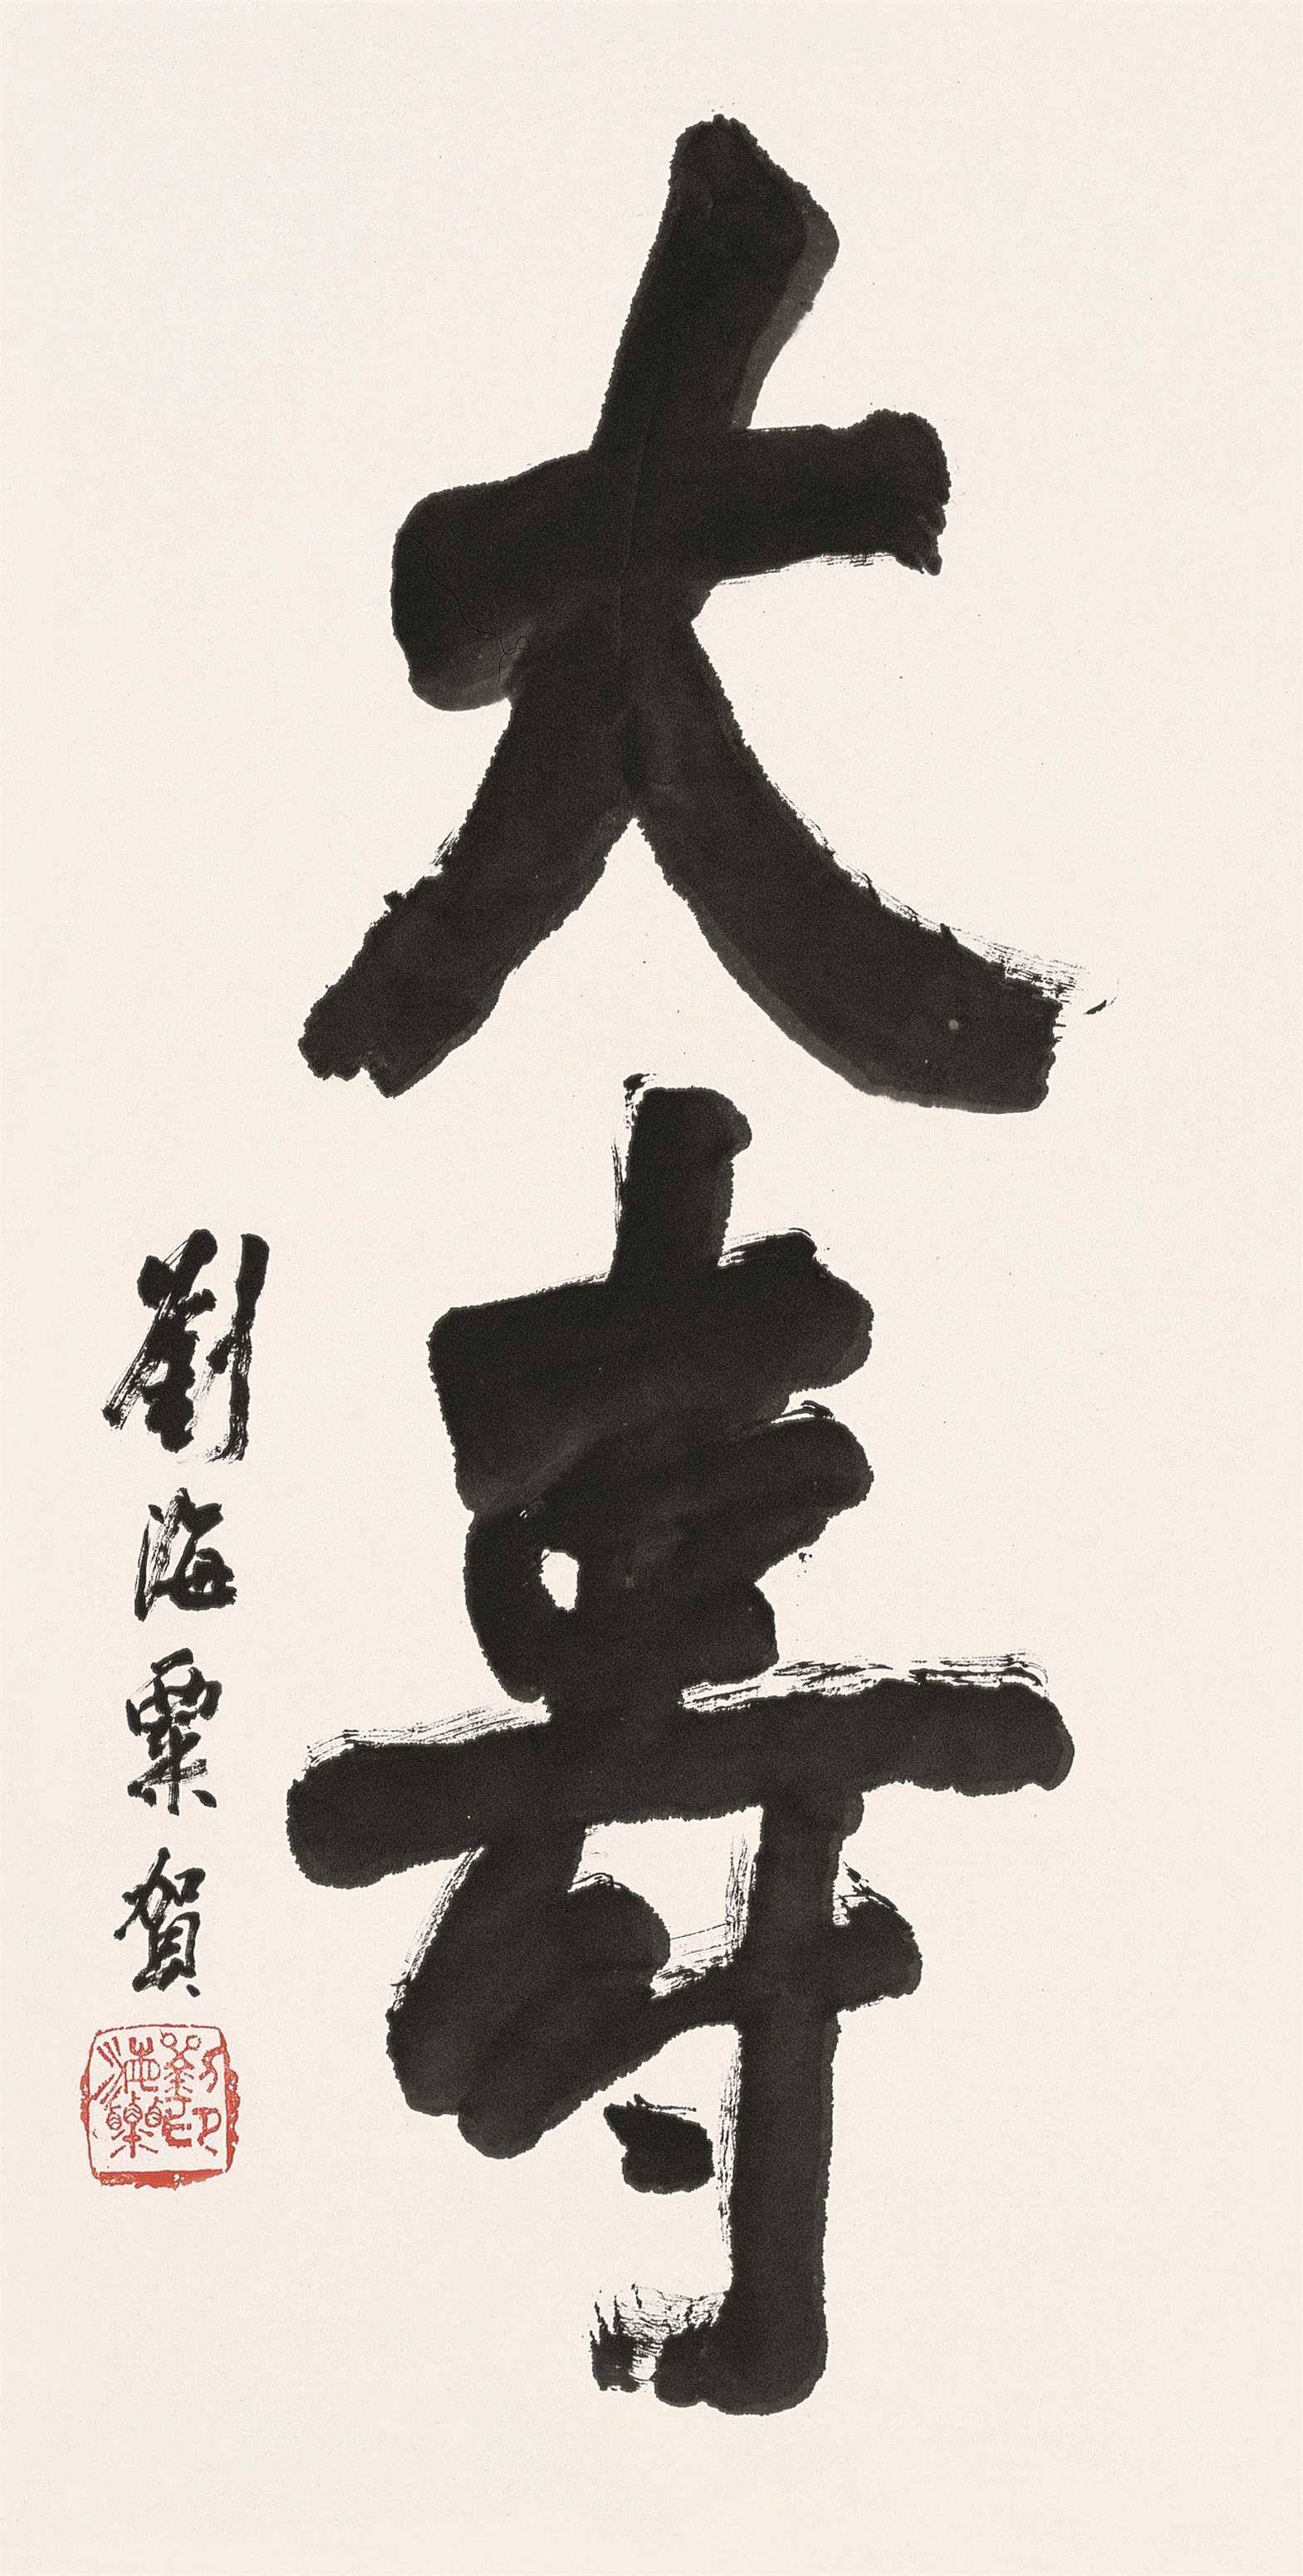 大壽
劉海粟賀
劉海粟印